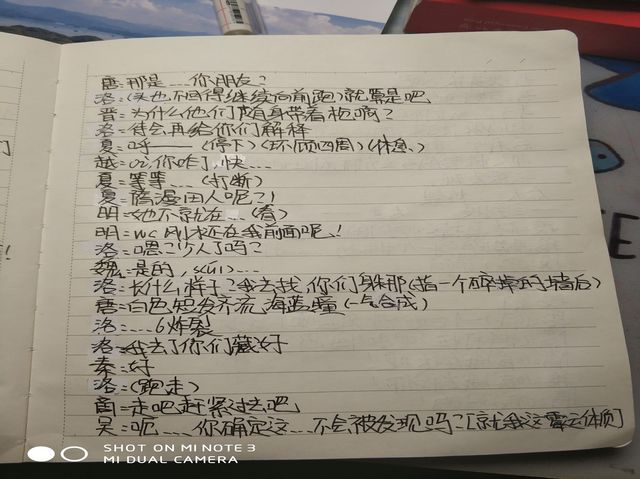 唐：那是……你朋友？
洛：(头也不回得继续向前跑)就算是吧
晋：为什么他们随身带着枪啊？
洛：待会再给你们解释
夏：呼——(停下)(环顾四周)(休息、)
越：oi,你咋了,快……
夏：等等……(打断)
夏：腾漫田人呢？！
明：她不就在……(看)
明：wc刚才还在我前面呢！
洛：嗯？少人了吗？
魏：是的,
洛：长什么样子？我去找,你们躲那(指一个碎掉的墙后)
唐：白色短发齐流海蓝瞳(一气合成)
洛：……6炸裂
洛：我去了你们藏好
秦：好
洛：(跑走)
商：走吧赶紧过去吧
吴：呃……你确定这……不会被发现吗？[就我这霉运体质]
SHOT ON MI NOTE 3
MI DUAL CAMERA